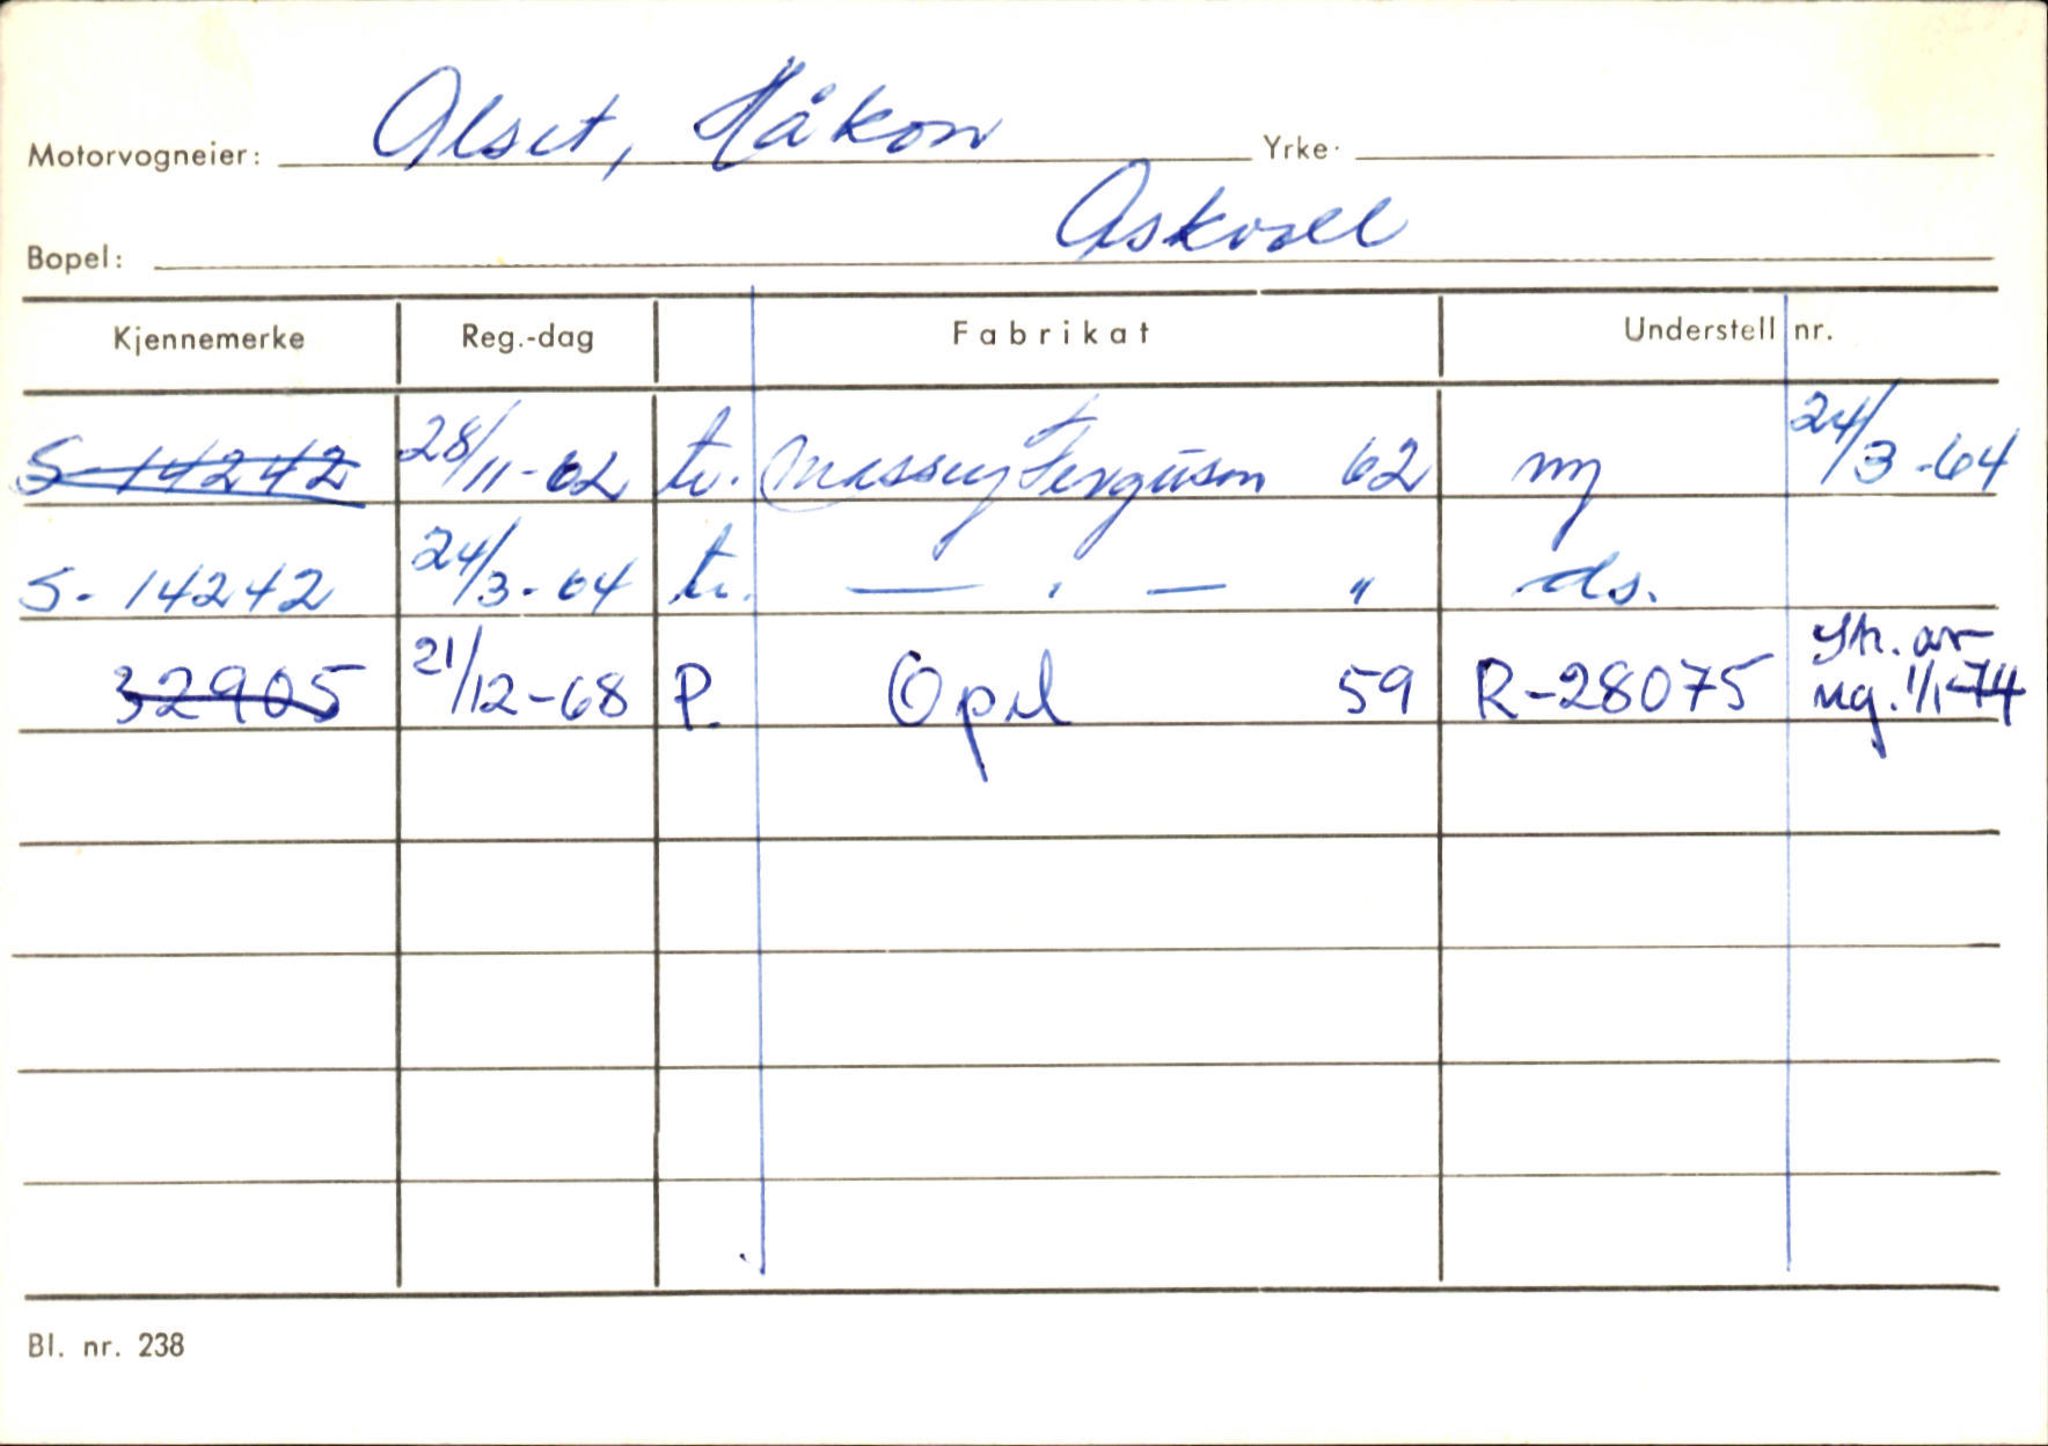 Motorvogneier: Alset, Håkon Yrke.
Bopel: Askvoll
Kjennemerke Reg.-dag Fabrikat Understell nr.
S-14242 28/11-62 tr. Massey Ferguson 62 ny 24/3-64
S-14242 24/3-64 tr. — " — " ds.
32905 21/12-68 P. Opel 59 R-28075 Str. av
reg. 1/1-74
Bl. nr. 238